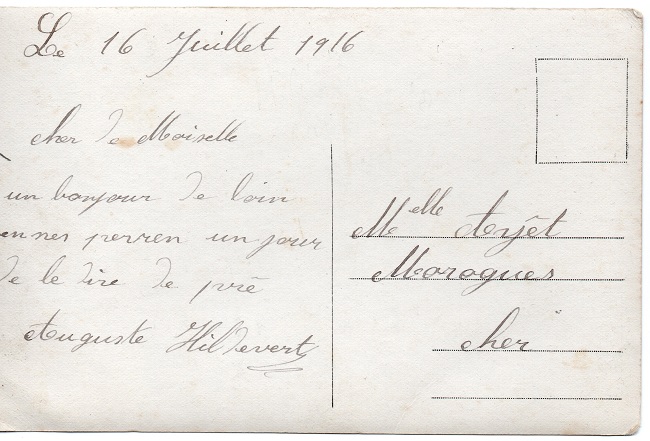 Le 16 Juillet 1916
cher de Moiselle
un bonjour de loin
en nes perren un jour
de le dire de prê
Auguste Hildevert
Melle Ayêt
Marogues
cher